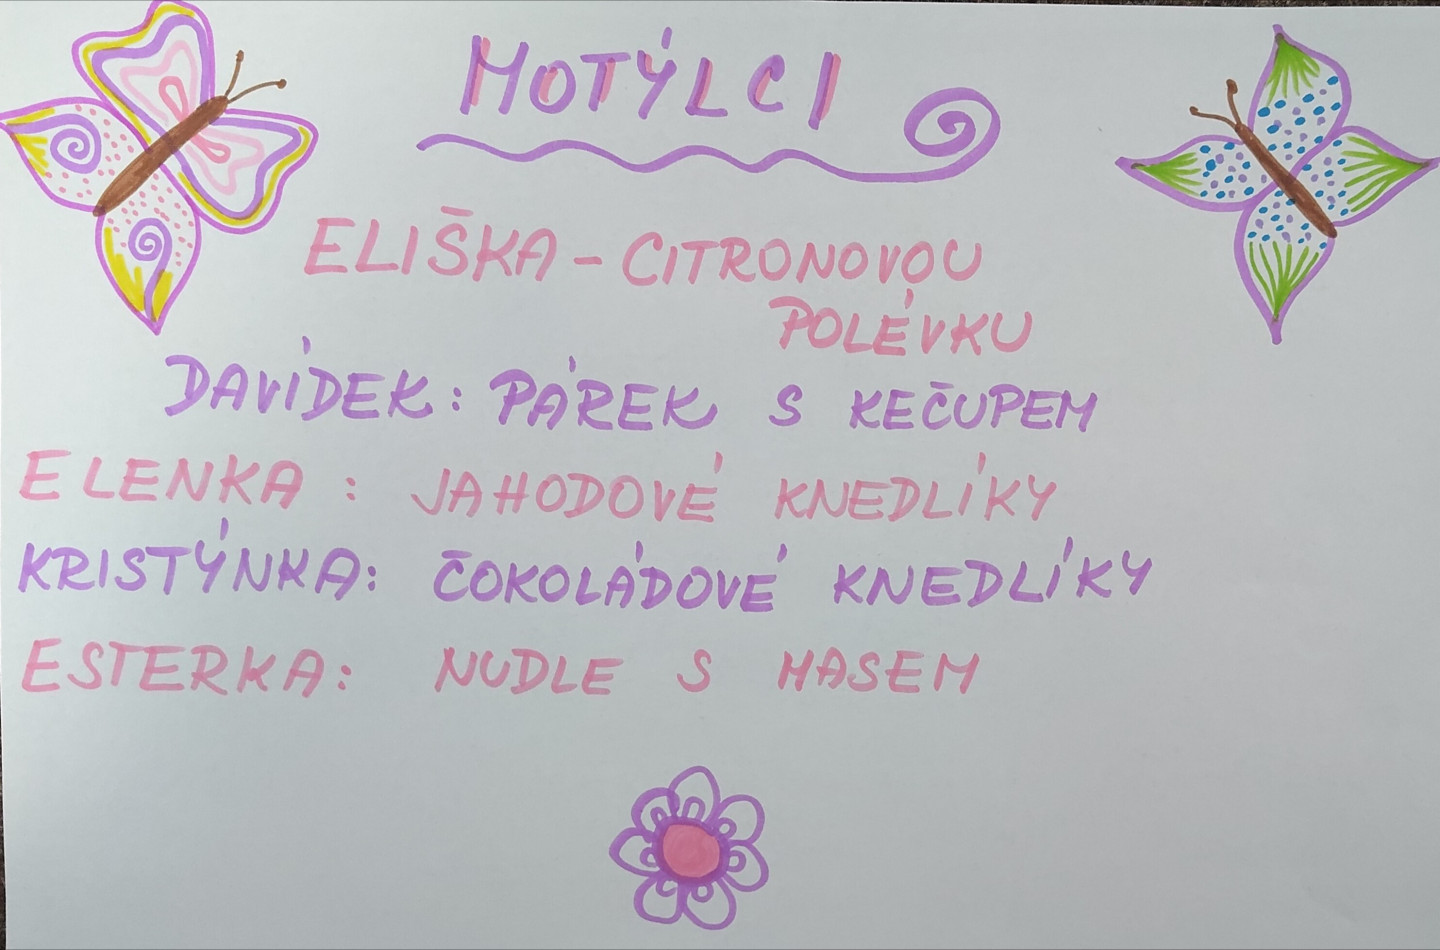 MOTÝLCI
ELIŠKA - CITRONOVOU
POLÉVKU
DAVÍDEK: PÁREK S KEČUPEM
ELENKA : JAHODOVÉ KNEDLÍKY
KRISTÝNKA: ČOKOLÁDOVÉ KNEDLÍKY
ESTERKA: NUDLE S MASEM